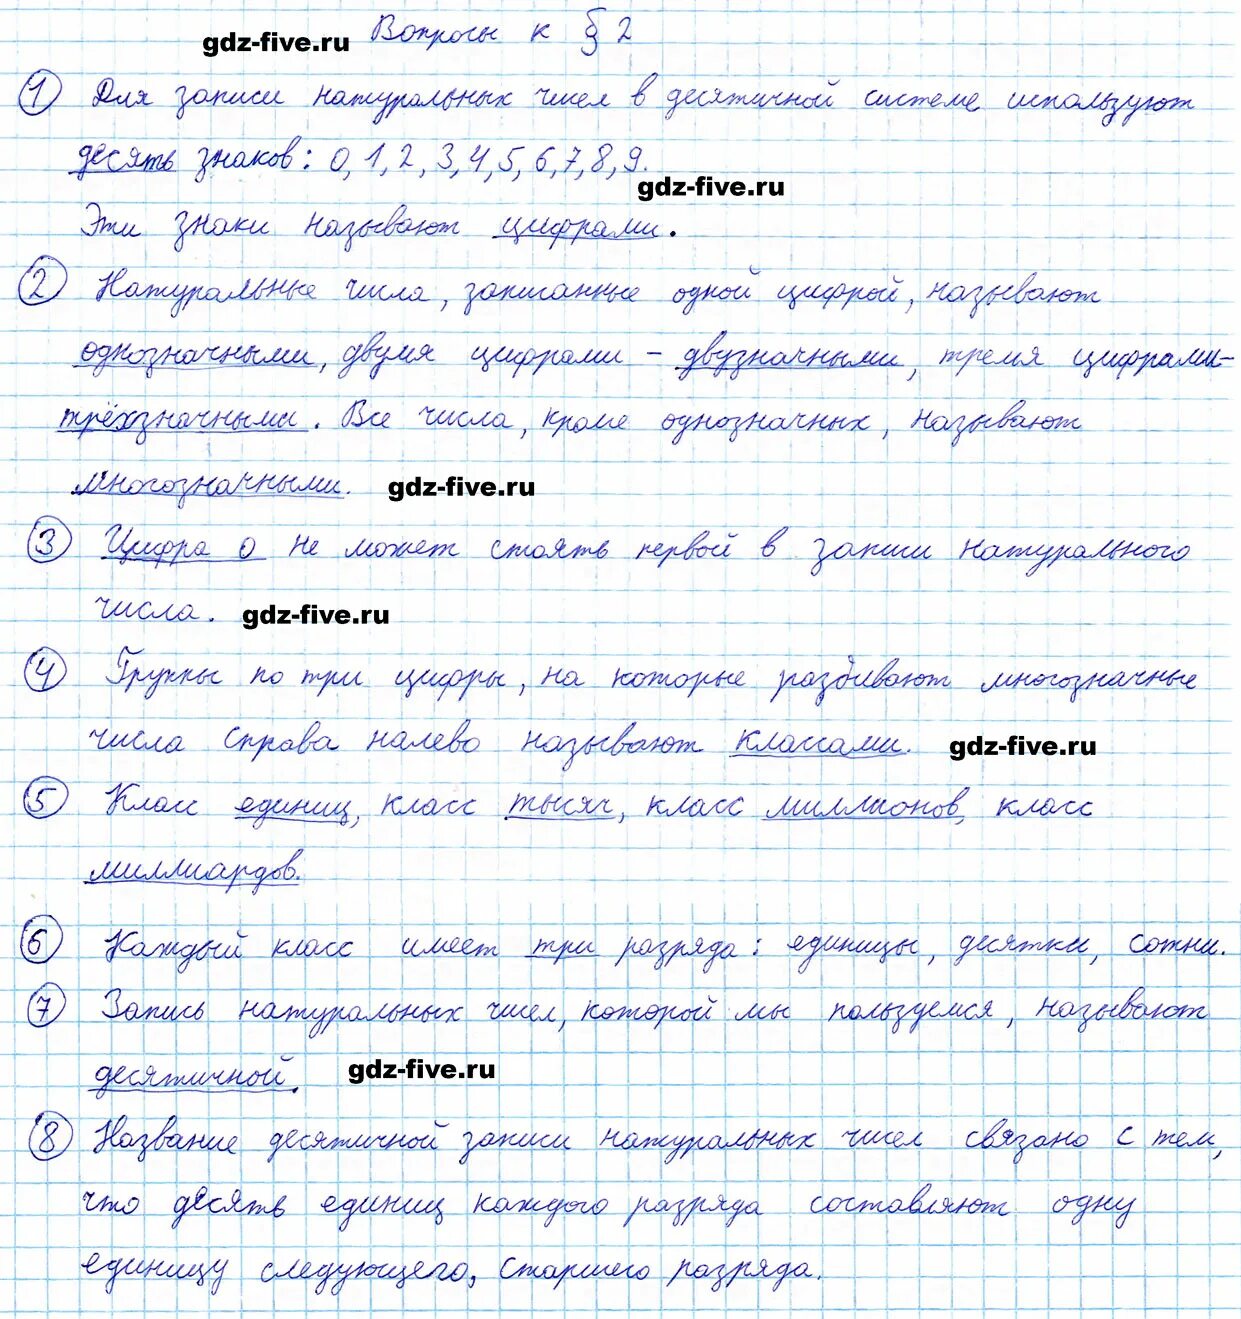 gdz-five.ru Вопросы к § 2
1 Для записи натуральных чисел в десятичной системе используют
десять знаков: 0, 1, 2, 3, 4, 5, 6, 7, 8, 9.
gdz-five.ru
Эти знаки называют цифрами.
2 Натуральные числа, записанные одной цифрой, называют
однозначными, двумя цифрами – двузначными, тремя цифрами-
трёхзначными. Все числа, кроме однозначных, называют
многозначными. gdz-five.ru
3 Цифра 0 не может стоять первой в записи натурального
числа. gdz-five.ru
4 Группы по три цифры, на которые разбивают многозначные
числа справа налево называют классами. gdz-five.ru
5 Класс единиц, класс тысяч, класс миллионов, класс
миллиардов.
6 Каждый класс имеет три разряда: единицы, десятки, сотни.
7 Запись натуральных чисел, которой мы пользуемся, называют
десятичной. gdz-five.ru
8 Название десятичной записи натуральных чисел связано с тем,
что десять единиц каждого разряда составляют одну
единицу следующего, старшего разряда.